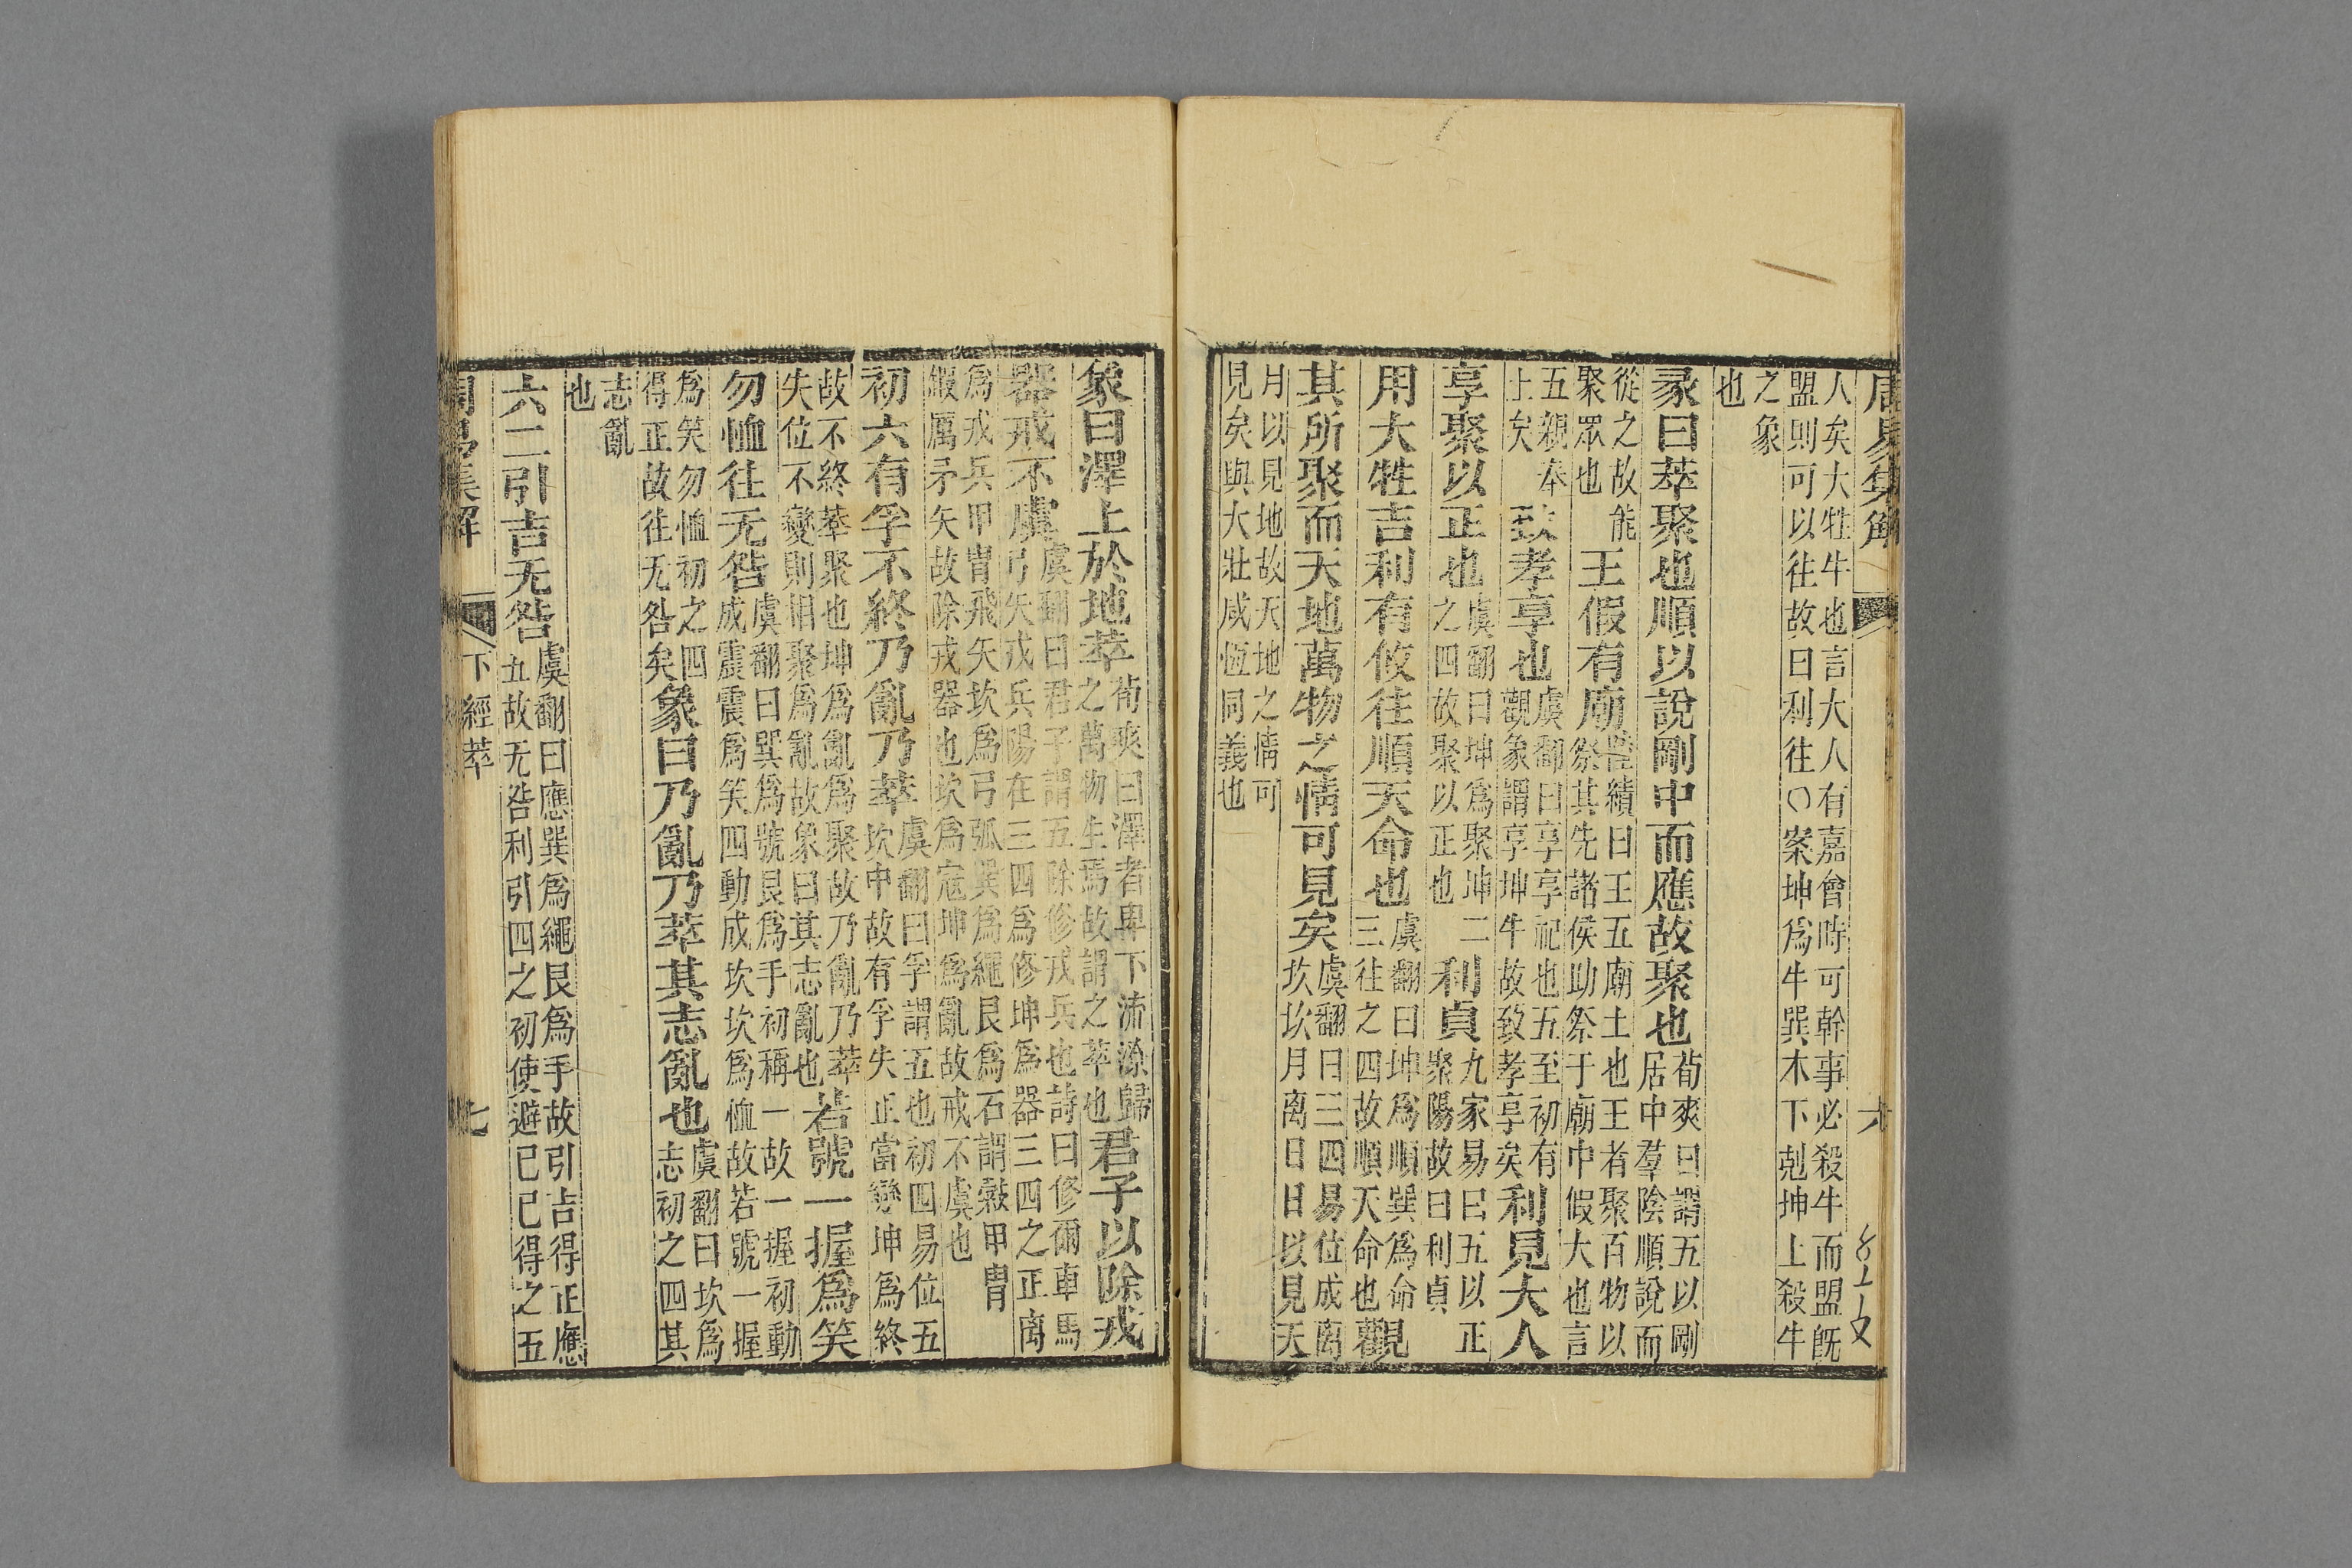 周易集解
六
人矣大牲牛也言大人有嘉會時可幹事必殺牛而盟旣
盟則可以往故曰利往〇案坤爲牛巽木下剋坤上殺牛
之象
也
彖曰萃聚也順以說剛中而應故聚也荀爽曰謂五以剛
居中羣陰順說而
從之故能
聚眾也王假有廟陸績曰王五廟土也王者聚百物以
祭其先諸侯助祭于廟中假大也言
五親奉
上矣致孝享也虞翻曰享享祀也五至初有
觀象謂享坤牛故致孝享矣利見大人
亨聚以正也虞翻曰坤爲聚坤二
之四故聚以正也利貞九家易曰五以正
聚陽故曰利貞
用大牲吉利有攸往順天命也虞翻曰坤爲順巽爲命
三往之四故順天命也觀
其所聚而天地萬物之情可見矣虞翻曰三四易位成离
坎坎月离日日以見天
月以見地故天地之情可
見矣與大壯咸恆同義也
象曰澤上於地萃荀爽曰澤者卑下流潦歸
之萬物生焉故謂之萃也君子以除戎
器戒不虞虞翻曰君子謂五除修戎兵也詩曰修爾車馬
弓矢戎兵陽在三四爲修坤爲器三四之正离
爲戎兵甲冑飛矢坎爲弓弧巽爲繩艮爲石謂敹甲冑
鍛厲矛矢故除戎器也坎爲寇坤爲亂故戒不虞也
初六有孚不終乃亂乃萃虞翻曰孚謂五也初四易位五
坎中故有孚失正當變坤爲終
故不終萃聚也坤爲亂爲聚故乃亂乃萃
失位不變則相聚爲亂故象曰其志亂也若號一握爲笑
勿恤往无咎虞翻曰巽爲號艮爲手初稱一故一握初動
成震震爲笑四動成坎坎爲恤故若號一握
爲笑勿恤初之四
得正故往无咎矣象曰乃亂乃萃其志亂也虞翻曰坎爲
志初之四其
志亂
也
六二引吉无咎虞翻曰應巽爲繩艮爲手故引吉得正應
五故无咎利引四之初使避已已得之五
周易集解
下經萃
七